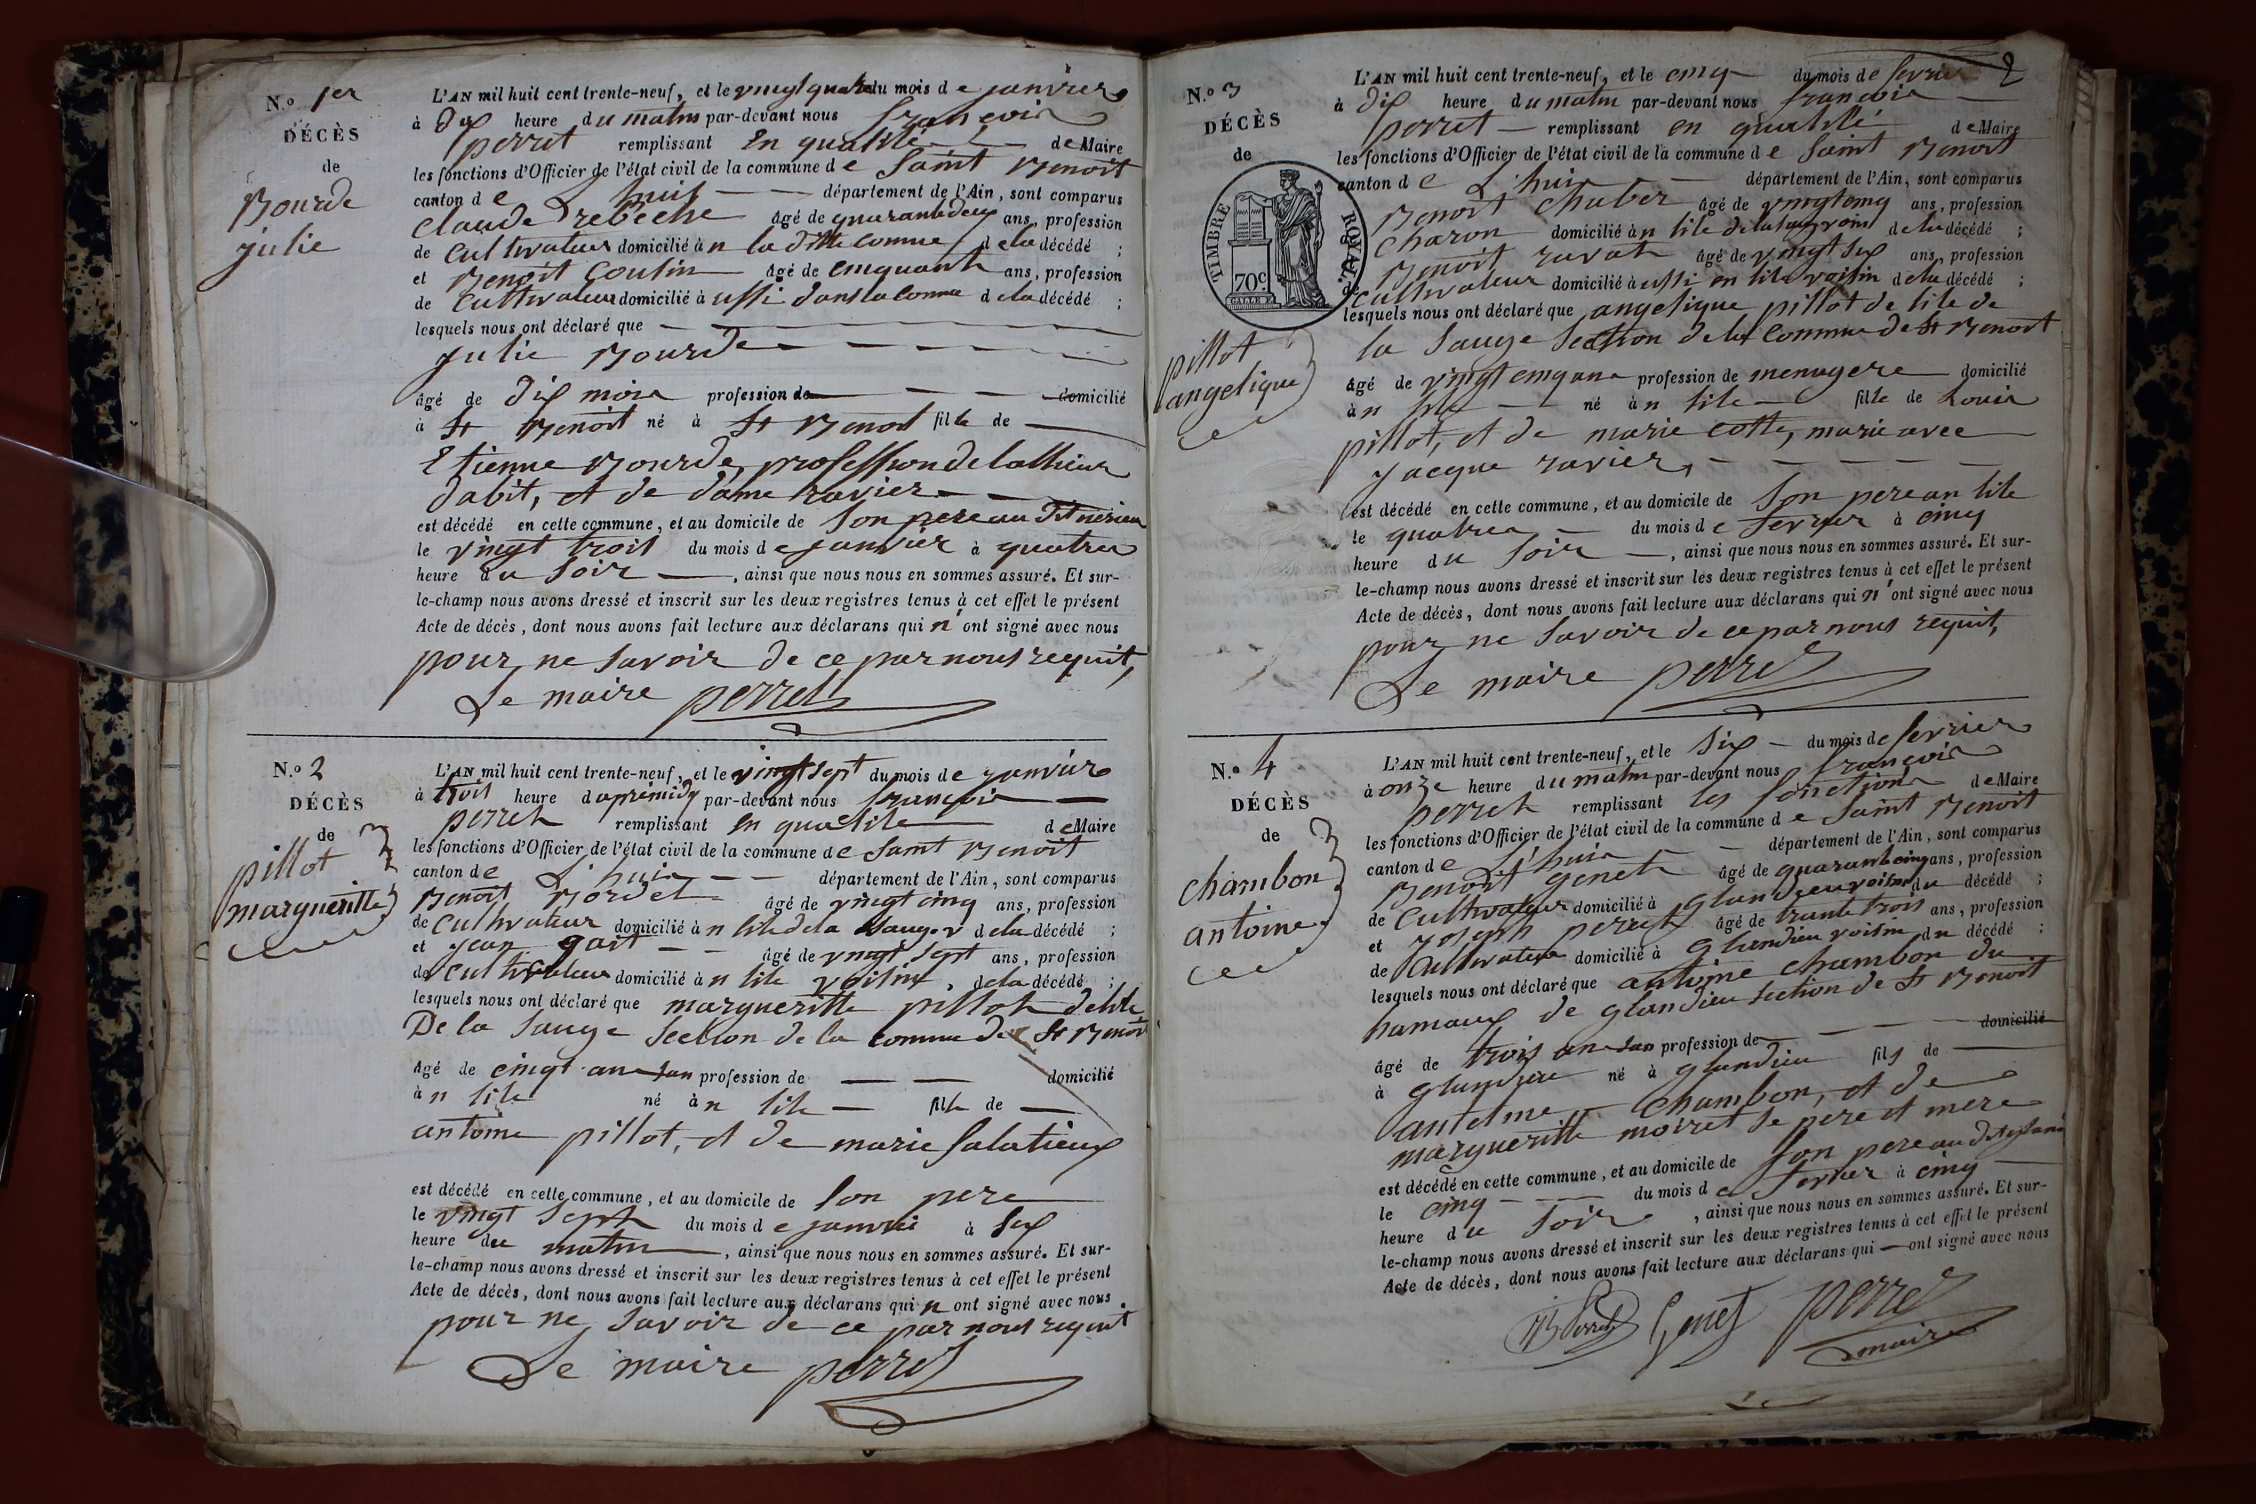 N.o 1er
DÉCÈS
de
Bourde
julie
L'AN mil huit cent trente-neuf, et le vingt quatre du mois de janvier
à dix heure du matin par-devant nous françois
perret remplissant en qualité de Maire
les fonctions d'Officier de l'état civil de la commune de Saint Benoit
canton de L'huis département de l'Ain, sont comparus
Claude rebeche âgé de quarante deux ans, profession
de Cultivateur domicilié àn la ditte comune de la décédé ;
et Benoit Goutin âgé de cinquante ans, profession
de Cultivateur domicilié à ussi dans la comune de la décédé ;
lesquels nous ont déclaré que
julie Bourde
âgé de dix mois profession de domicilié
à St Benoit né à St Benoit fille de
Etienne Bourde, profession de tallieur
dabit, et de dame ravier
est décédé en cette commune, et au domicile de Son pere au dit
le vingt trois du mois de janvier à quatres
heure du Soir, ainsi que nous nous en sommes assuré. Et sur-
le-champ nous avons dressé et inscrit sur les deux registres tenus à cet effet le présent
Acte de décès, dont nous avons fait lecture aux déclarans qui n'ont signé avec nous
pour ne Savoir de ce par nous requit,
Le maire perret
N.o 2
DÉCÈS
de
pillot
margueritte
L'AN mil huit cent trente-neuf, et le vingt sept du mois de janvier
à trois heure daprémidy par-devant nous françois
perret remplissant en qualité de Maire
les fonctions d'Officier de l'état civil de la commune de Saint Benoit
canton de L'huis département de l'Ain, sont comparus
Benoit Bordet âgé de vingt cinq ans, profession
de Cultivateur domicilié àn lile de la Sauge de la décédé ;
et jean gait âgé de vingt Sept ans, profession
de Cultivateur domicilié àn lile voisin, de la décédé ;
lesquels nous ont déclaré que margueritte pillot de lile
De la Sauge Section de la comune de St Benoit
âgé de cinqt an San profession de domicilié
àn lile né àn lile fille de
antoine pillot, et de marie Salatieux
est décédé en cette commune, et au domicile de Son pere
le vingt Sept du mois de janvié à Six
heure du matin, ainsi que nous nous en sommes assuré. Et sur-
le-champ nous avons dressé et inscrit sur les deux registres tenus à cet effet le présent
Acte de décès, dont nous avons fait lecture aux déclarans qui n ont signé avec nous
pour ne Savoir de ce par nous requit
Le maire perret
2
N.o 3
DÉCÈS
de
TIMBRE ROYAL.
70c
pillot
angelique
L'AN mil huit cent trente-neuf, et le cinq du mois de fevrier
à Dix heure du matin par-devant nous françois
perret remplissant en qualité de Maire
les fonctions d'Officier de l'état civil de la commune de Saint Benoit
canton de L'huis département de l'Ain, sont comparus
Benoit Chaber âgé de vingt cinq ans, profession
Charon domicilié àn lile de la Sauge voisin de la décédé ;
Benoit ravat âgé de vingt Six ans, profession
de Cultivateur domicilié à ussi en lile voisin de la décédé ;
lesquels nous ont déclaré que angelique pillot de lile de
la Sauge Section de la Comune de St Benoit
âgé de vingt cinq ans profession de menagere domicilié
àn lile né àn lile fille de Louis
pillot, et de marie cotte, marié avec
jacque ravier,
est décédé en cette commune, et au domicile de Son pere an lile
le quatres du mois de fevrier à cinq
heure du Soir, ainsi que nous nous en sommes assuré. Et sur-
le-champ nous avons dressé et inscrit sur les deux registres tenus à cet effet le présent
Acte de décès, dont nous avons fait lecture aux déclarans qui n'ont signé avec nous
pour ne Savoir de ce par nous requit,
Le maire perret
N.o 4
DÉCÈS
de
chambon
antoine
L'AN mil huit cent trente-neuf, et le Six du mois de fevrier
à onze heure du matin par-devant nous françois
perret remplissant les fonctions de Maire
les fonctions d'Officier de l'état civil de la commune de Saint Benoit
canton de L'huis département de l'Ain, sont comparus
Benoit genet âgé de quarante cinq ans, profession
de Cultivateur domicilié à glandieu voisin du décédé ;
et joseph perret âgé de trante trois ans, profession
de Cultivateur domicilié à glandieu voisin du décédé ;
lesquels nous ont déclaré que antoine chambon du
hamaux de glandieu Section de St Benoit
âgé de trois an San profession de domicilié
à glandieu né à glandieu fils de
antelme Chambon, et de
margueritte moiret Se pere et mere
est décédé en cette commune, et au domicile de Son pere au dit
le cinq du mois de fevrier à cinq
heure du Soir, ainsi que nous nous en sommes assuré. Et sur-
le-champ nous avons dressé et inscrit sur les deux registres tenus à cet effet le présent
Acte de décès, dont nous avons fait lecture aux déclarans qui ont signé avec nous
Perret Genet perret
maire